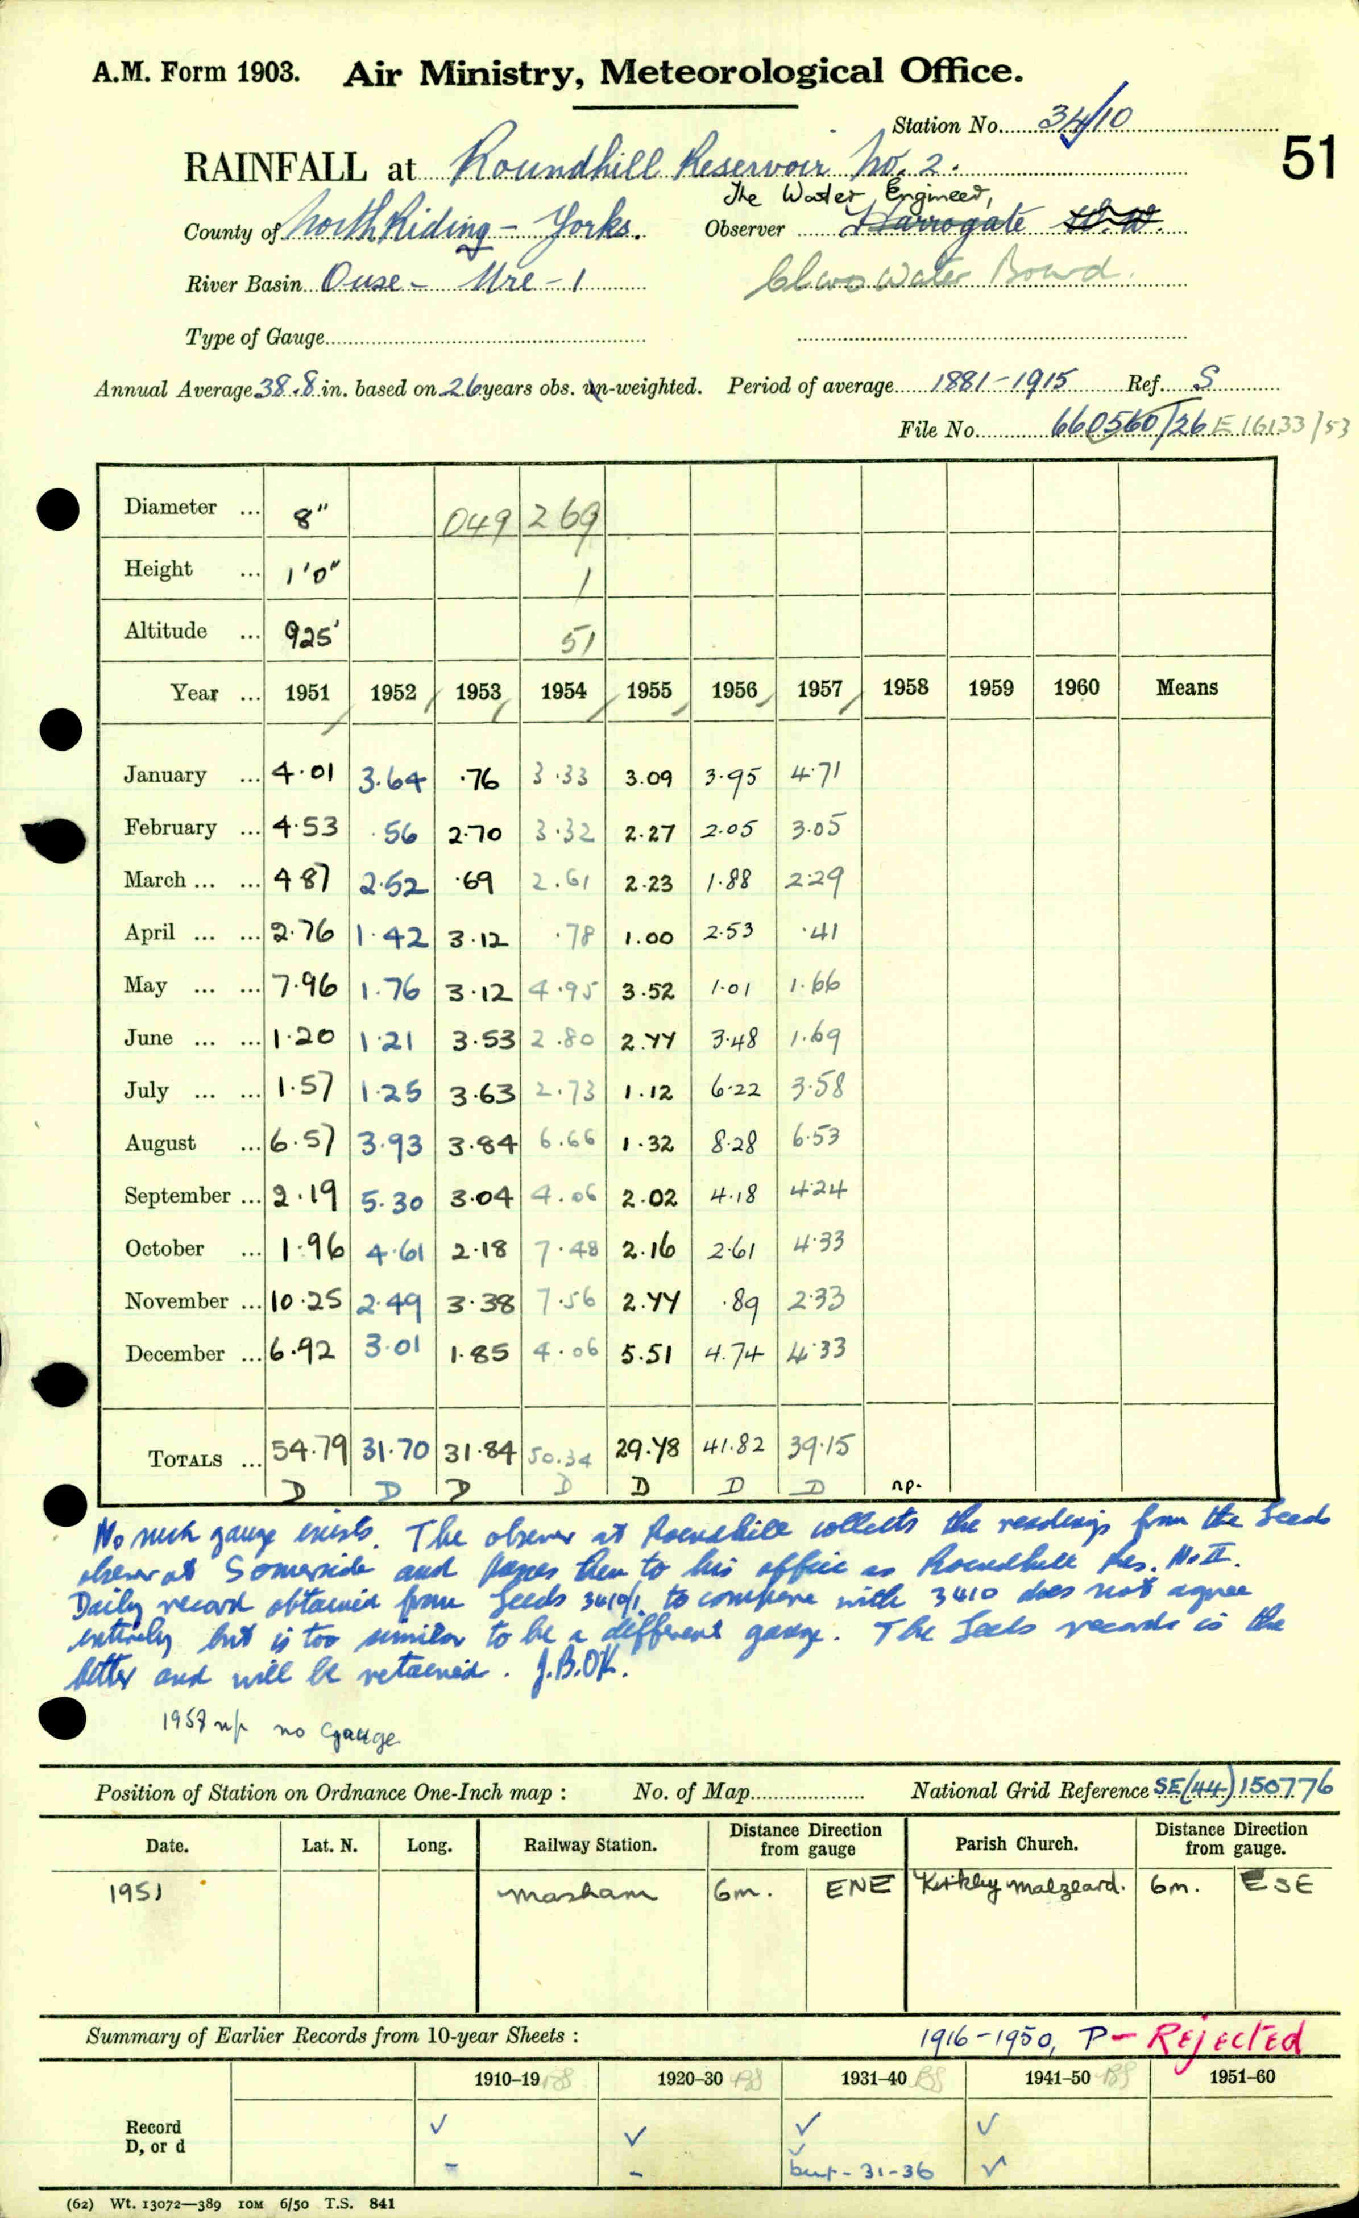 A.M. Form 1903. Air Ministry, Meteorological Office.
Station No. 34/10
51
RAINFALL at Roundhill Reservoir No. 2.
The Water Engineer,
County of North Riding - Yorks. Observer Harrogate W.W.
River Basin Ouse - Ure - 1 Water Board.
Type of Gauge
Annual Average 38.8 in. based on 26 years obs. un-weighted. Period of average 1881-1915 Ref. S
File No. 660560/26 E16133/53
Diameter ... 8" 049 269
Height ... 1'0" 1
Altitude ... 925' 51
Year ... 1951 1952 1953 1954 1955 1956 1957 1958 1959 1960 Means
January ... 4.01 3.64 .76 3.33 3.09 3.95 4.71
February ... 4.53 .56 2.70 3.32 2.27 2.05 3.05
March ... ... 4 87 2.52 .69 2.61 2.23 1.88 2.29
April ... ... 2.76 1.42 3.12 .78 1.00 2.53 .41
May ... ... 7.96 1.76 3.12 4.95 3.52 1.01 1.66
June ... ... 1.20 1.21 3.53 2.80 2.44 3.48 1.69
July ... ... 1.57 1.25 3.63 2.73 1.12 6.22 3.58
August ... 6.57 3.93 3.84 6.66 1.32 8.28 6.53
September ... 2.19 5.30 3.04 4.06 2.02 4.18 4.24
October ... 1.96 4.61 2.18 7.48 2.16 2.61 4.33
November ... 10.25 2.49 3.38 7.56 2.44 .89 2.33
December ... 6.92 3.01 1.85 4.06 5.51 4.74 4.33
TOTALS ... 54.79 31.70 31.84 50.34 29.48 41.82 39.15
D D D D D D D np.
No such gauge exists. The observer at Roundhill collects the readings from the Leeds
observer at Somerside and passes them to his office as Roundhill Res. No II.
Daily record obtained from Leeds 3410/1 to compare with 3410 does not agree
entirely but is too similar to be a different gauge. The Leeds records is the
better and will be retained. J.B.OK.
1958 np no gauge
Position of Station on Ordnance One-Inch map : No. of Map National Grid Reference SE(44)150776
Date. Lat. N. Long. Railway Station. Distance Direction from gauge Parish Church. Distance Direction from gauge.
1951 Masham 6m. ENE Kirkby Malzeard. 6m. ESE
Summary of Earlier Records from 10-year Sheets : 1916-1950, P - Rejected
1910-19 1920-30 1931-40 1941-50 1951-60
Record ✓ ✓ ✓ ✓
D, or d - - ✓ but - 31-36 ✓
(62) Wt. 13072—389 10M 6/50 T.S. 841